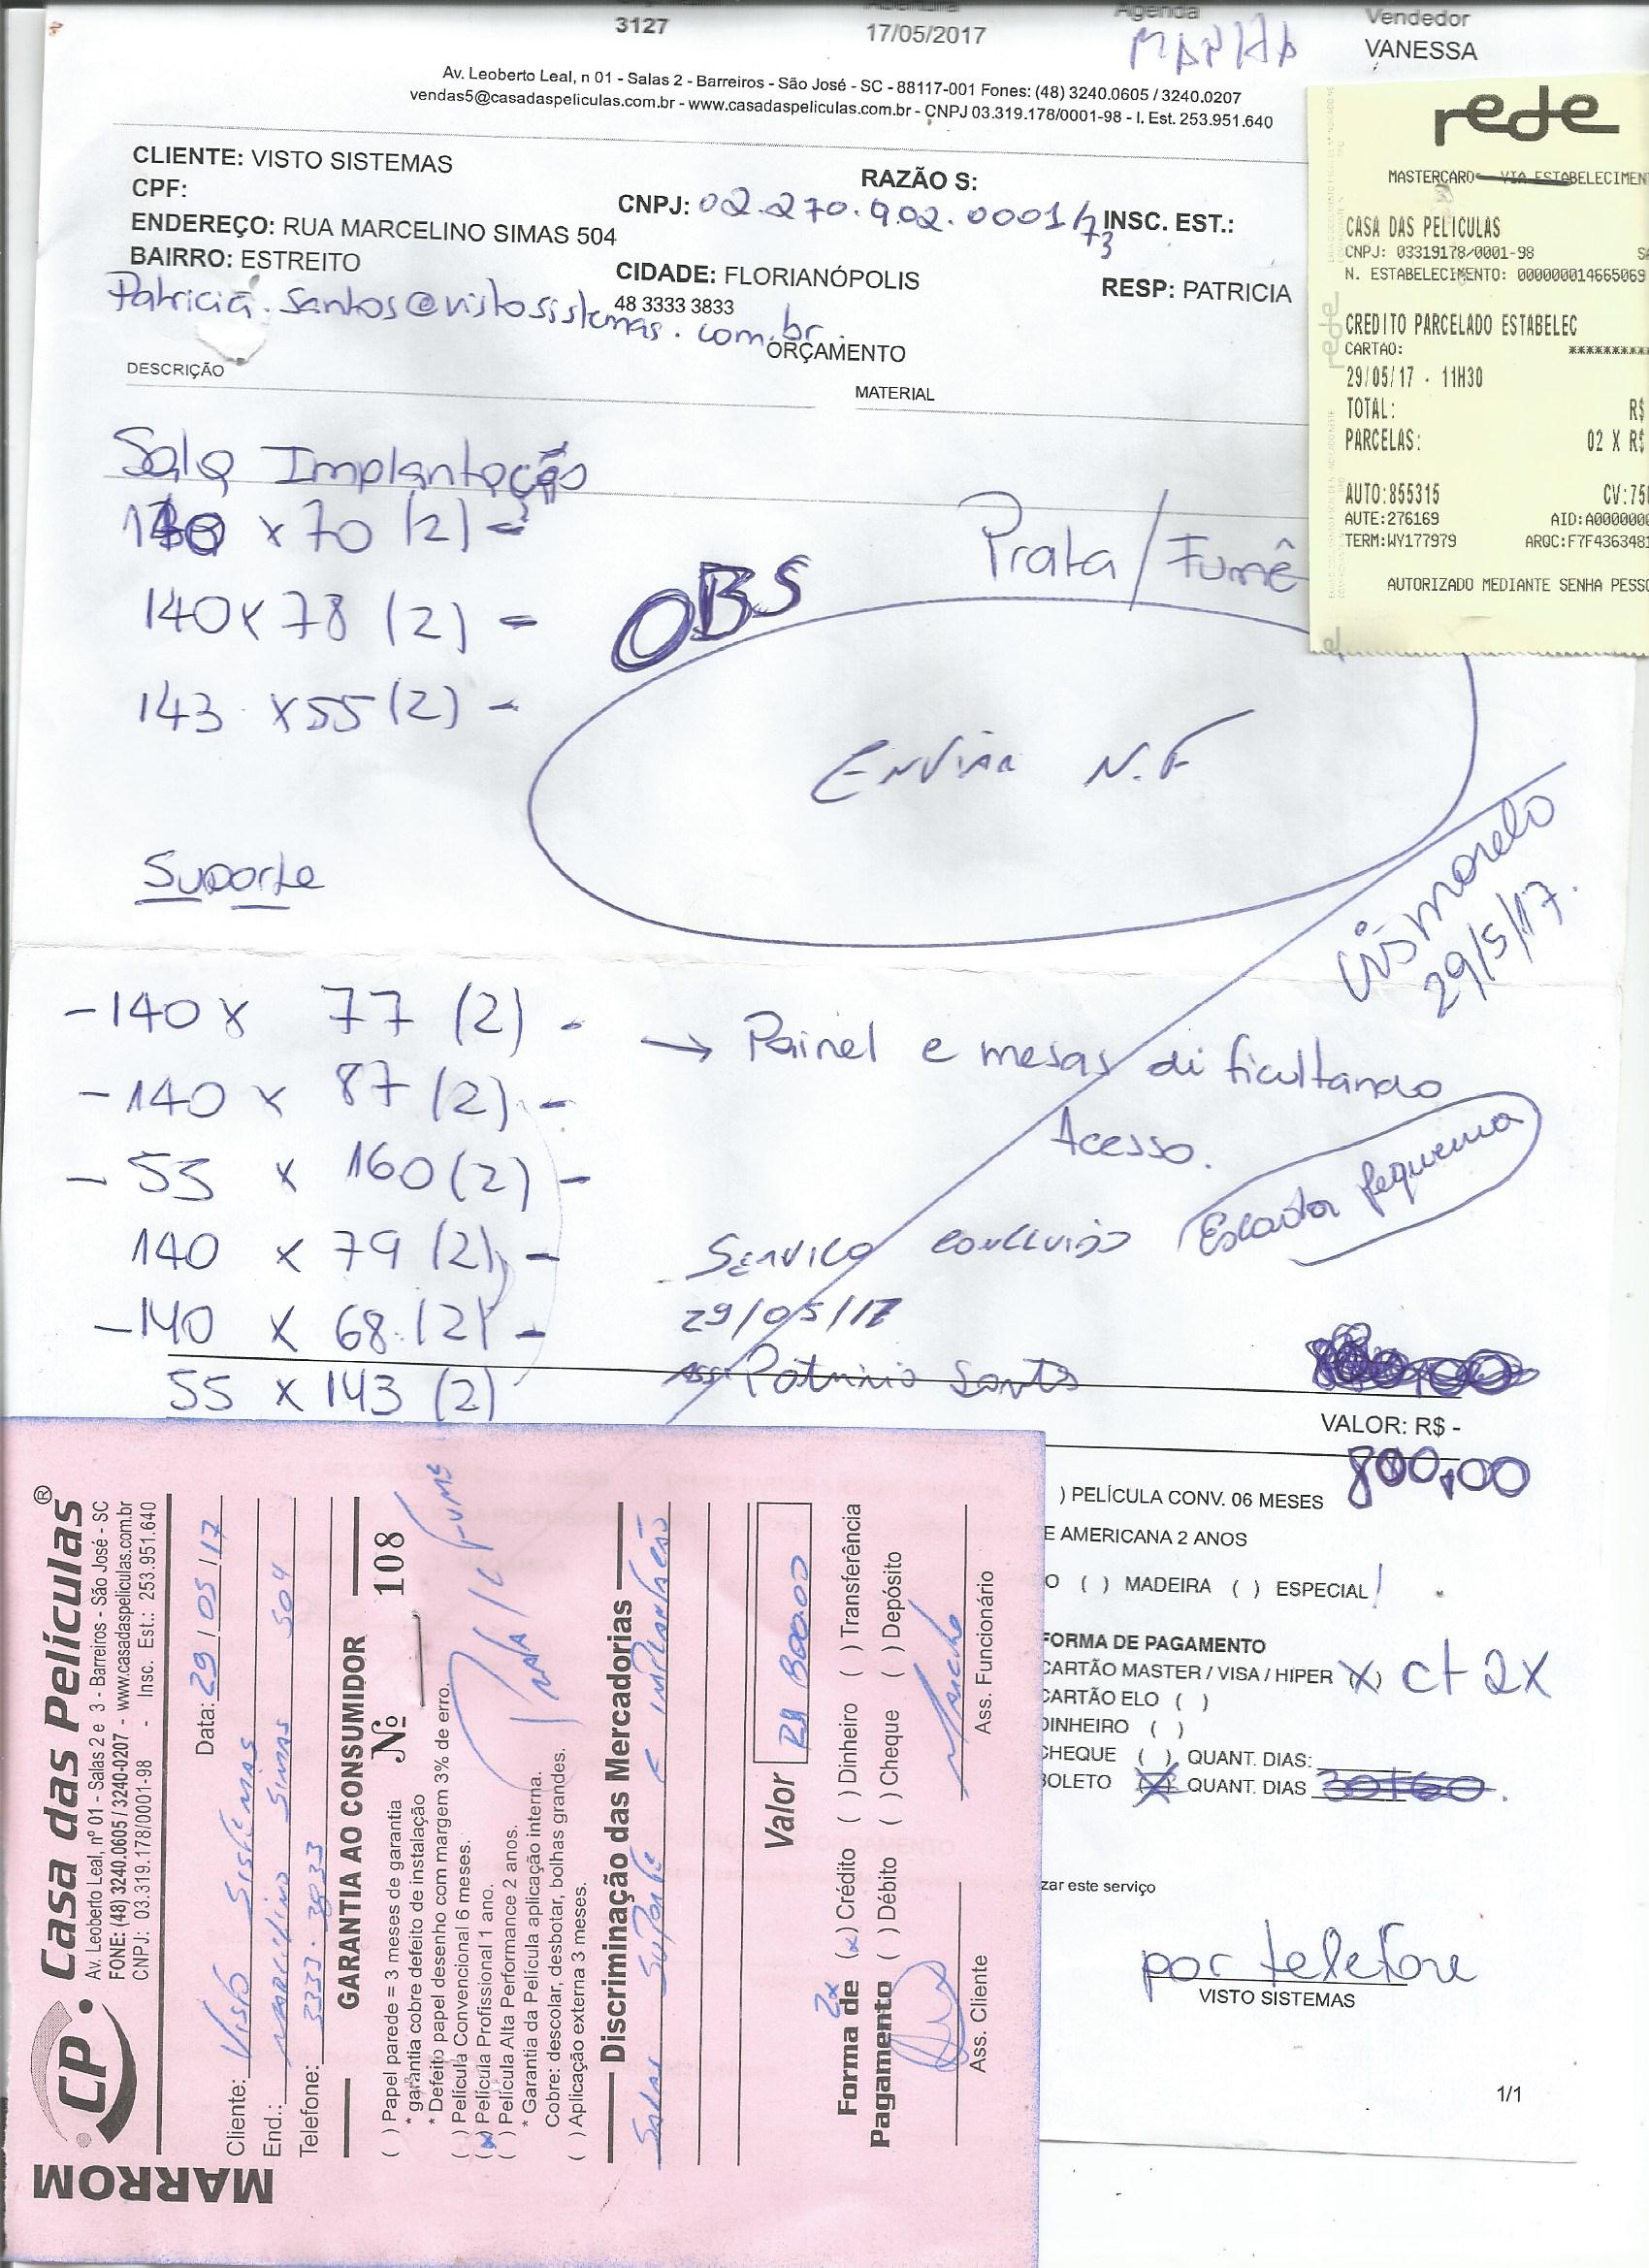 3127
17/05/2017
Agenda
MANHÃ
Vendedor
VANESSA
Av. Leoberto Leal, n 01 - Salas 2 - Barreiros - São José - SC - 88117-001 Fones: (48) 3240.0605 / 3240.0207
vendas5@casadaspeliculas.com.br - www.casadaspeliculas.com.br - CNPJ 03.319.178/0001-98 - I. Est. 253.951.640
CLIENTE: VISTO SISTEMAS
RAZÃO S:
CPF:
CNPJ: 02.270.902.0001/73
INSC. EST.:
ENDEREÇO: RUA MARCELINO SIMAS 504
BAIRRO: ESTREITO
CIDADE: FLORIANÓPOLIS
RESP: PATRICIA
48 3333 3833
Patricia.Santos@vistosistemas.com.br.
ORÇAMENTO
DESCRIÇÃO
MATERIAL
rede
MASTERCARD VIA ESTABELECIMEN
CASA DAS PELICULAS
CNPJ: 03319178/0001-98
N. ESTABELECIMENTO: 000000014665069
CREDITO PARCELADO ESTABELEC
CARTAO: **********
29/05/17 - 11H30
TOTAL: R$
PARCELAS: 02 X R$
AUTO:855315 CV:75
AUTE:276169 AID:A000000
TERM:WY177979 ARQC:F7F4363481
AUTORIZADO MEDIANTE SENHA PESSO
Sala Implantação
x 70 (2) -
140 x 78 (2) -
143 x 55 (2) -
Prata/Fumê
OBS
ENVIAR N.F
Suporte
29/5/17.
-140 x 77 (2) -
-140 x 87 (2) -
- 55 x 160 (2) -
140 x 79 (2) -
-140 x 68 (2) -
55 x 143 (2)
→ Painel e mesas dificultando
Acesso.
Escada pequena
SERVIÇO CONCLUIDO
29/05/17
VALOR: R$ -
800,00
) PELÍCULA CONV. 06 MESES
E AMERICANA 2 ANOS
O ( ) MADEIRA ( ) ESPECIAL
FORMA DE PAGAMENTO
CARTÃO MASTER / VISA / HIPER (X) ct 2x
CARTÃO ELO ( )
DINHEIRO ( )
CHEQUE ( ) QUANT. DIAS:
BOLETO (X) QUANT. DIAS 30+60.
zar este serviço
por telefone
VISTO SISTEMAS
1/1
CP
Casa das Películas®
Av. Leoberto Leal, nº 01 - Salas 2 e 3 - Barreiros - São José - SC
FONE: (48) 3240.0605 / 3240-0207 - www.casadaspeliculas.com.br
CNPJ: 03.319.178/0001-98 - Insc. Est.: 253.951.640
MARROM
Data: 29/05/17
Cliente: Visto Sistemas
End.: Marcelino Simas 504
Telefone: 3333.3833
GARANTIA AO CONSUMIDOR
Nº 108
( ) Papel parede = 3 meses de garantia
* garantia cobre defeito de instalação
* Defeito papel desenho com margem 3% de erro.
( ) Película Convencional 6 meses.
(x) Película Profissional 1 ano.
( ) Película Alta Performance 2 anos.
* Garantia da Película aplicação interna.
Cobre: descolar, desbotar, bolhas grandes.
( ) Aplicação externa 3 meses.
Prata / Fumê
Discriminação das Mercadorias
Salas Suporte e Implantação
Valor R$ 800.00
2x
Forma de Pagamento
(x) Crédito ( ) Dinheiro ( ) Transferência
( ) Débito ( ) Cheque ( ) Depósito
Ass. Cliente
Ass. Funcionário